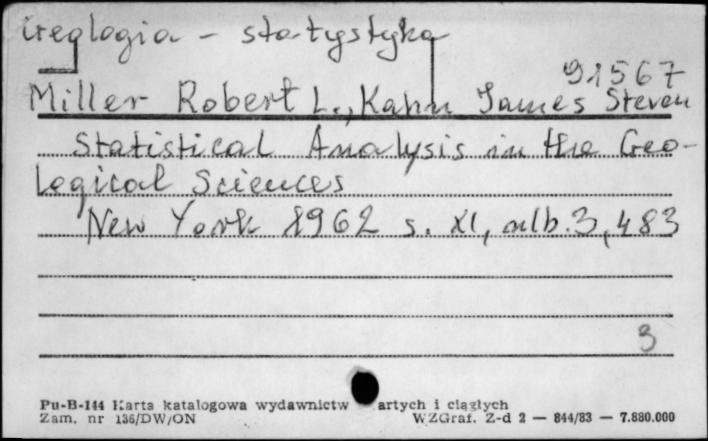 geologia - statystyka
91567
Miller Robert L., Kahn James Steven
Statistical Analysis in the Geo-
logical Sciences
New York 1962 s. XI, nlb. 3, 483
3
Pu-B-144 Karta katalogowa wydawnictw artych i ciągłych
Zam. nr 136/DW/ON WZGraf. Z-d 2 — 844/83 — 7.880.000